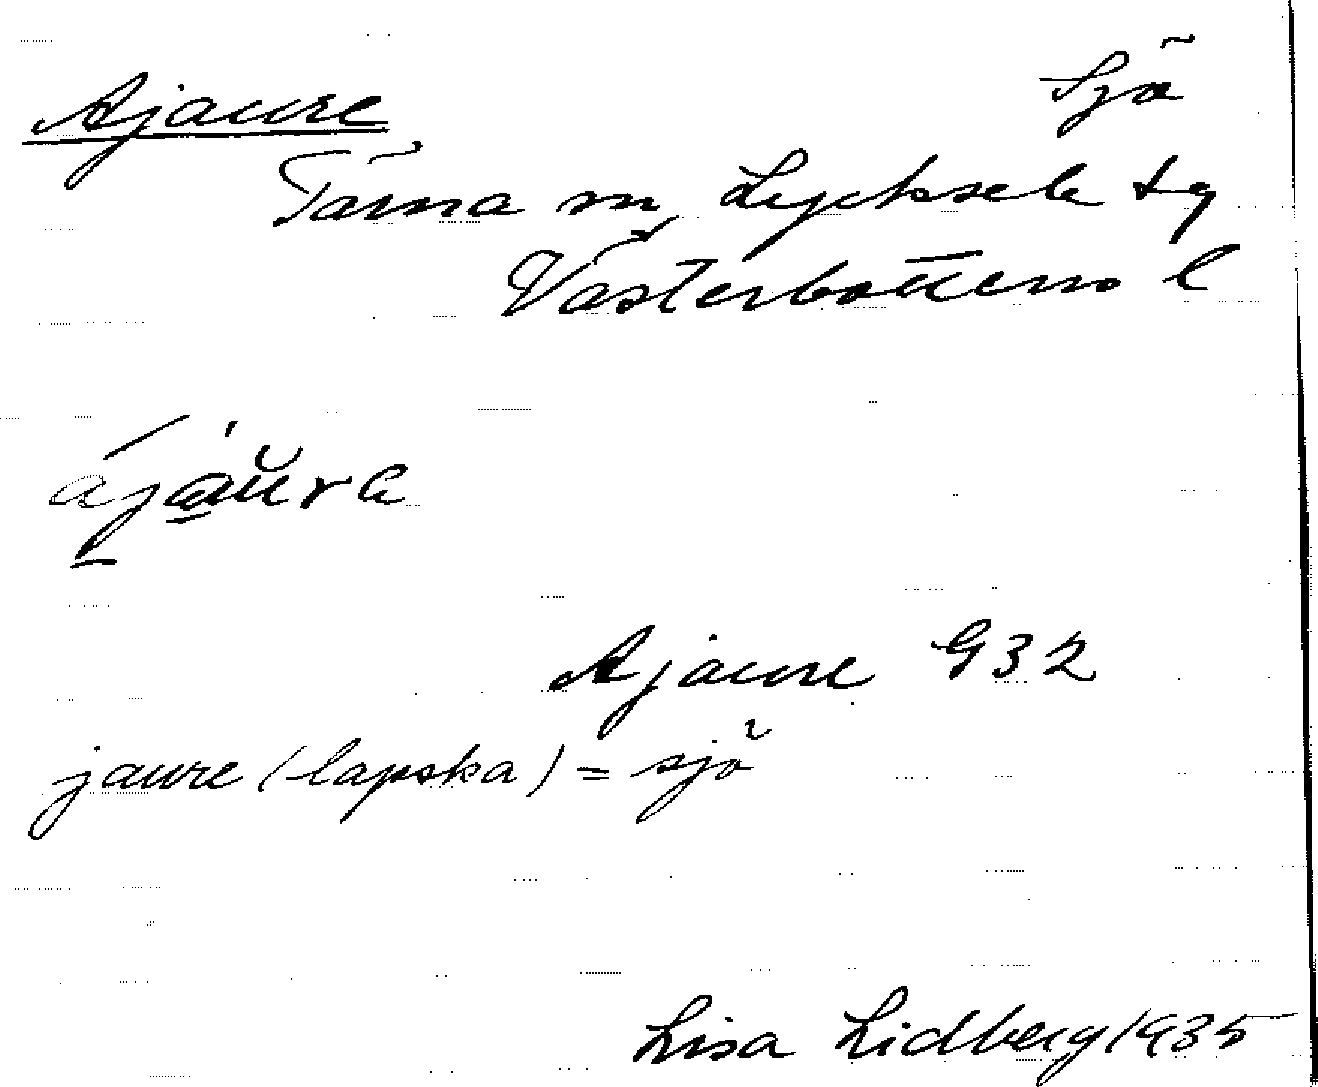 Ajaure Sjö
Tärna sn, Lycksele tg
Västerbottens l
ájáŭra
Ajaure G32
jaure (lapska) = sjö
Lisa Lidberg 1935